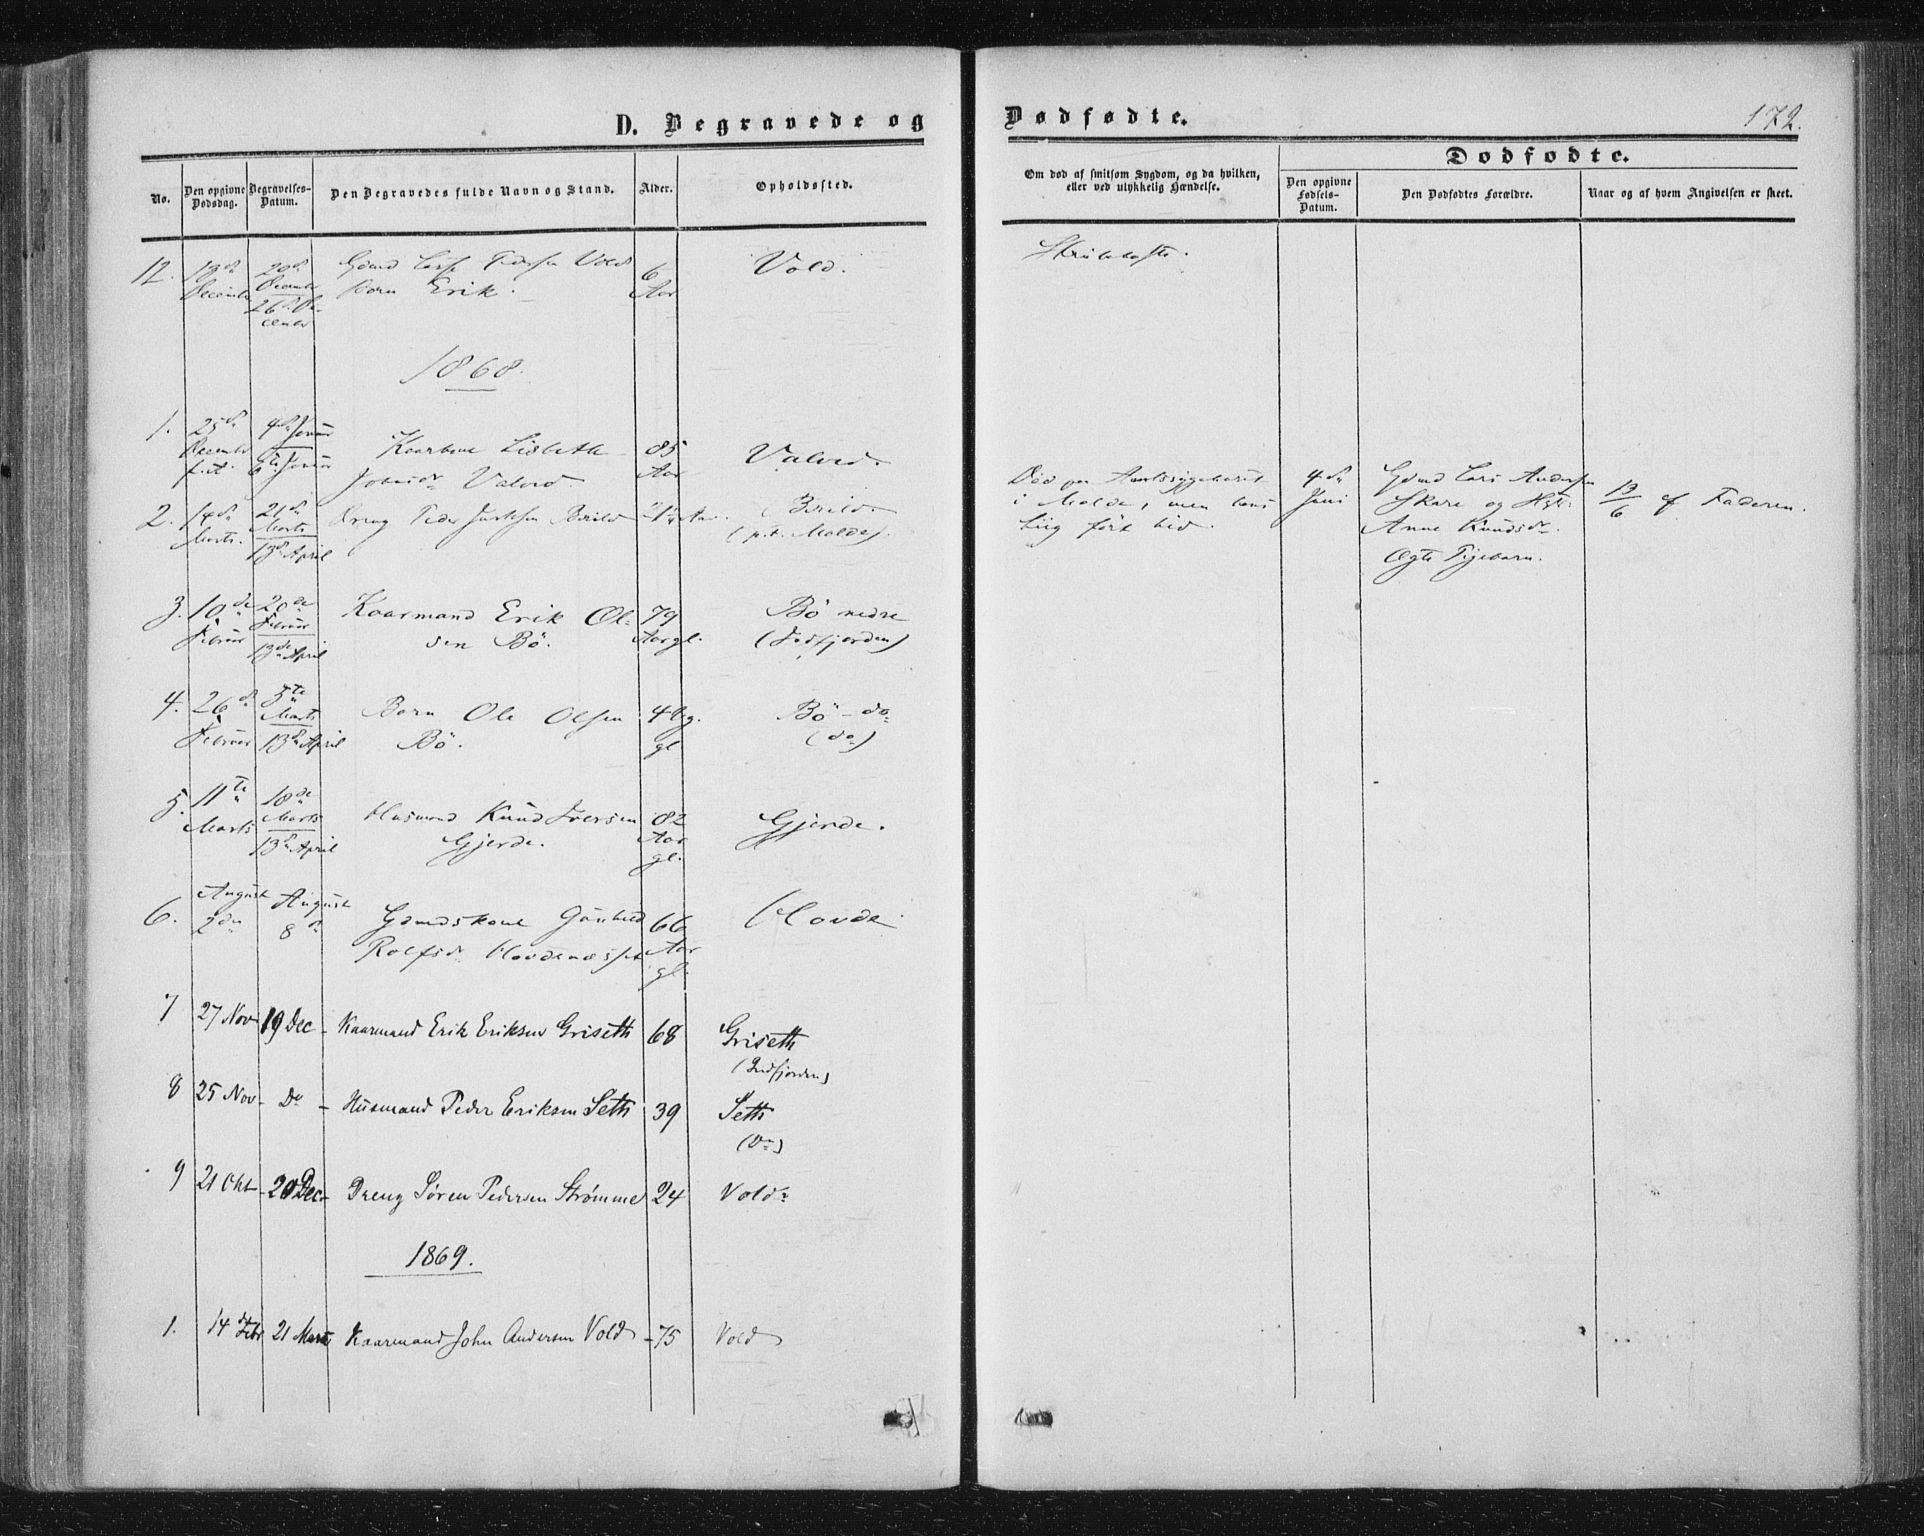 D. Begravede og Dødfødte.
172.
No.
Den opgivne Dødsdag.
Begravelses-Datum.
Den Begravedes fulde Navn og Stand.
Alder.
Opholdssted.
Om død af smitsom Sygdom, og da hvilken,
eller ved ulykkelig Hændelse.
Dødfødte.
Den opgivne Fødsels-Datum.
Den Dødfødtes Forældre.
Naar og af hvem Angivelsen er skeet.
12. 18de December
20de December
26de December
Gdmd Vold
Barn Erik.
6 Aar
Vold.
1868.
1. 25de December f.A.
4de Januar
6te Januar
Lisbeth
Valved
85 Aar
Valved.
2. 14de Marts.
21de Marts
13de April
Dreng Peder
Aar.
(p.t. Molde).
Død paa Amtssygehuset
i Molde, men hans
Liig ført hid.
4de Juni
Gdmd Lars Andersen
Skare og Hst.
Anne Knudsdr.
Ægte Pigebarn.
19/6 af Faderen.
3. 10de Februar
20de Februar
13de April
Kaarmand Erik Ol-
sen Bö.
79 Aar gl.
Bö nedre
4. 26de Februar
5te Marts
13de April
Barn Ole Olsen
Bö.
gl
Bö - do
(do)
5. 11te Marts
18de Marts
13de April
Husmand Knud Iversen
Gjerde.
82 Aar gl.
Gjerde.
6. August 2den
August 8de
Gmdskone Gunhild
Rolfsdr Hovdenæsset
66 Aar gl.
Hovde
7 27 Nov 19 Dec - Kaarmand Erik Eriksen Griseth 68 Griseth
8 25 Nov - Do - Husmand Peder Eriksen Seth 39 Seth
(Do)
9 21 Okt - 20 Dec - Dreng Søren Pedersen Strømme 24 Vold
1869.
1. 14 Febr 21 Marts Kaarmand John Andersen Vold - 75 Vold